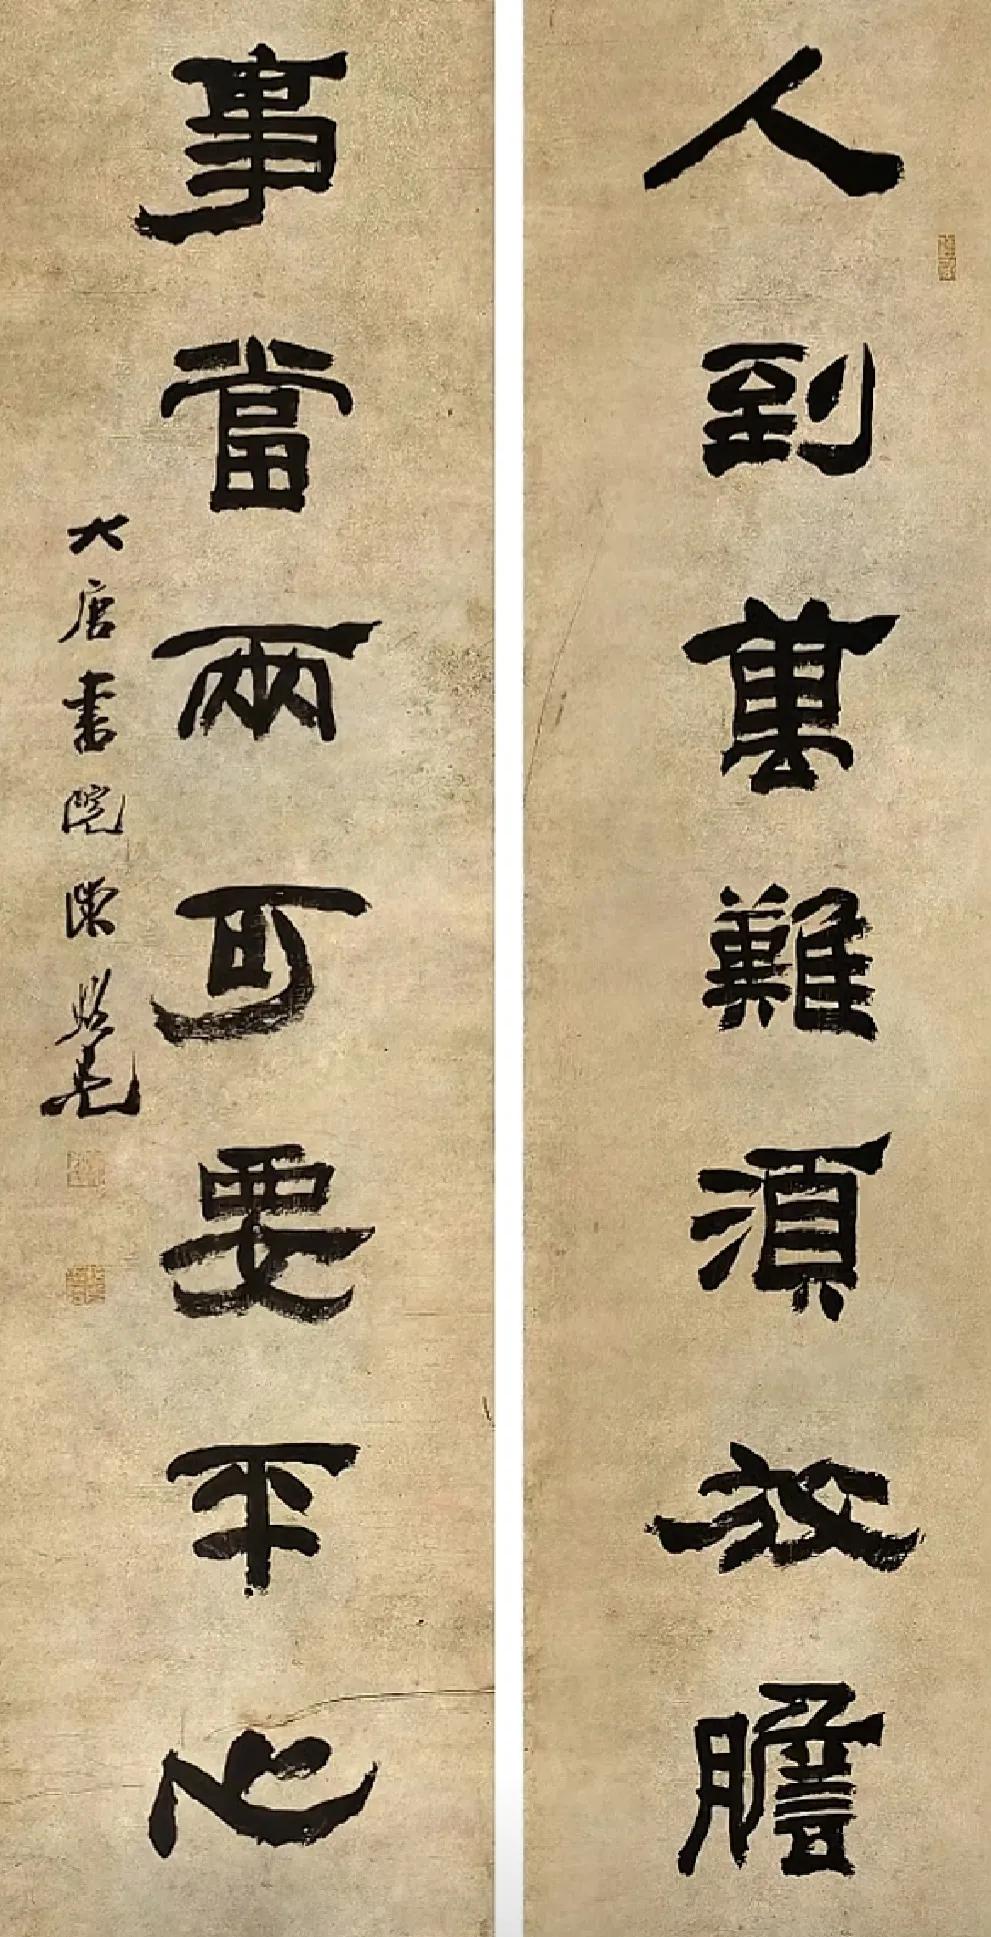 人到萬難須放膽
事當兩可要平心
大唐書院陳